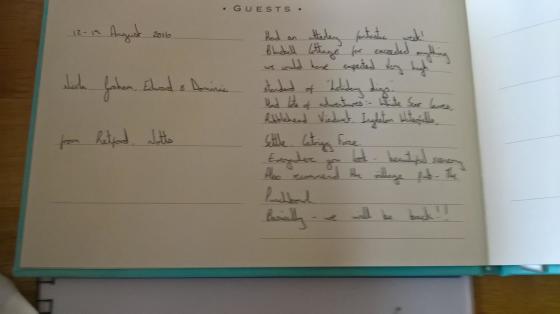 • GUESTS •
12-19 August 2016
Had an utterley fantastic week!
Cottage far exceeded anything
we would have expected. Very high
Graham, Edward & Dominic
standard of 'holiday digs'.
Had lots of adventures:- White Scar Caves,
Ribblehead Viaduct, Ingleton Waterfalls,
from Retford, Notts
Settle, Force
Everywhere you look - beautiful scenery
Also recommend the village pub - The
Punchbowl
Basically - we will be back!!